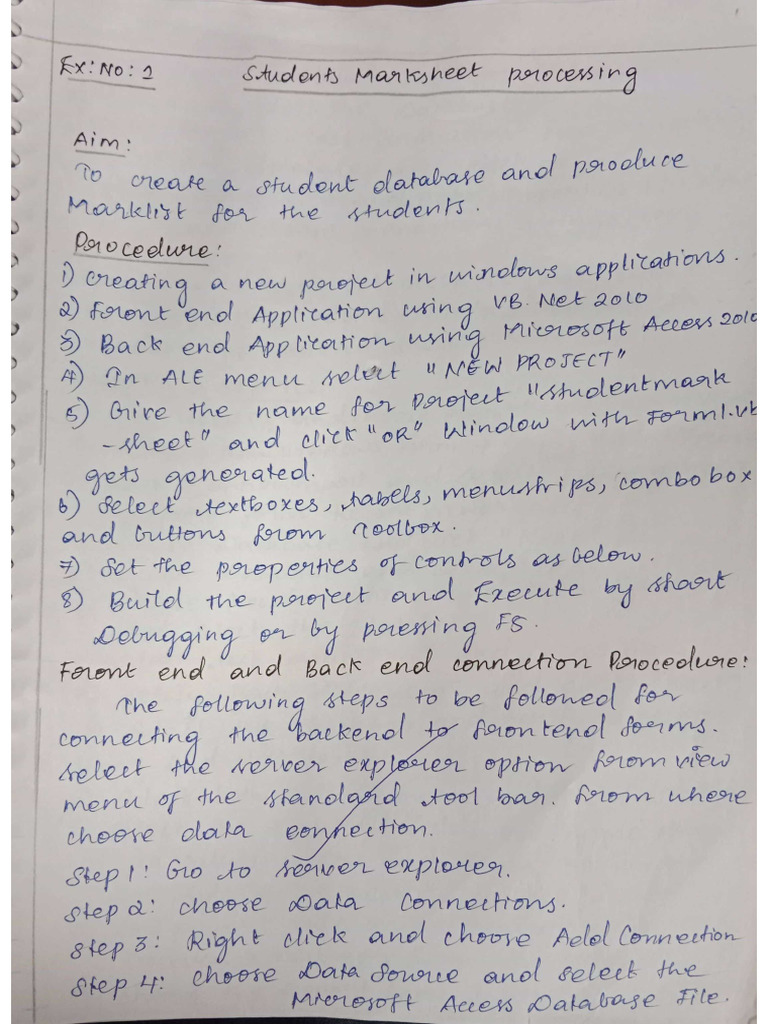 Ex: No: 1 Students Marksheet processing
Aim:
To create a student database and produce
Marklist for the students.
Procedure:
1) creating a new project in windows applications.
2) Front end Application using VB. Net 2010
3) Back end Application using Microsoft Access 2010
4) In ALE menu select "NEW PROJECT"
5) Give the name for Project "studentmark
-sheet" and click "OR" Window with Form1.vb
gets generated.
6) Select textboxes, labels, menustrips, combo box
and buttons from Toolbox.
7) Set the properties of controls as below.
8) Build the project and Execute by start
Debugging or by pressing F5.
Front end and Back end connection Procedure:
The following steps to be followed for
connecting the backend to frontend forms.
select the server explorer option from view
menu of the standard tool bar. from where
choose data connection.
Step 1: Go to server explorer.
Step 2: choose Data Connections.
Step 3: Right click and choose Add Connection
Step 4: choose Data Source and select the
Microsoft Access Database File.